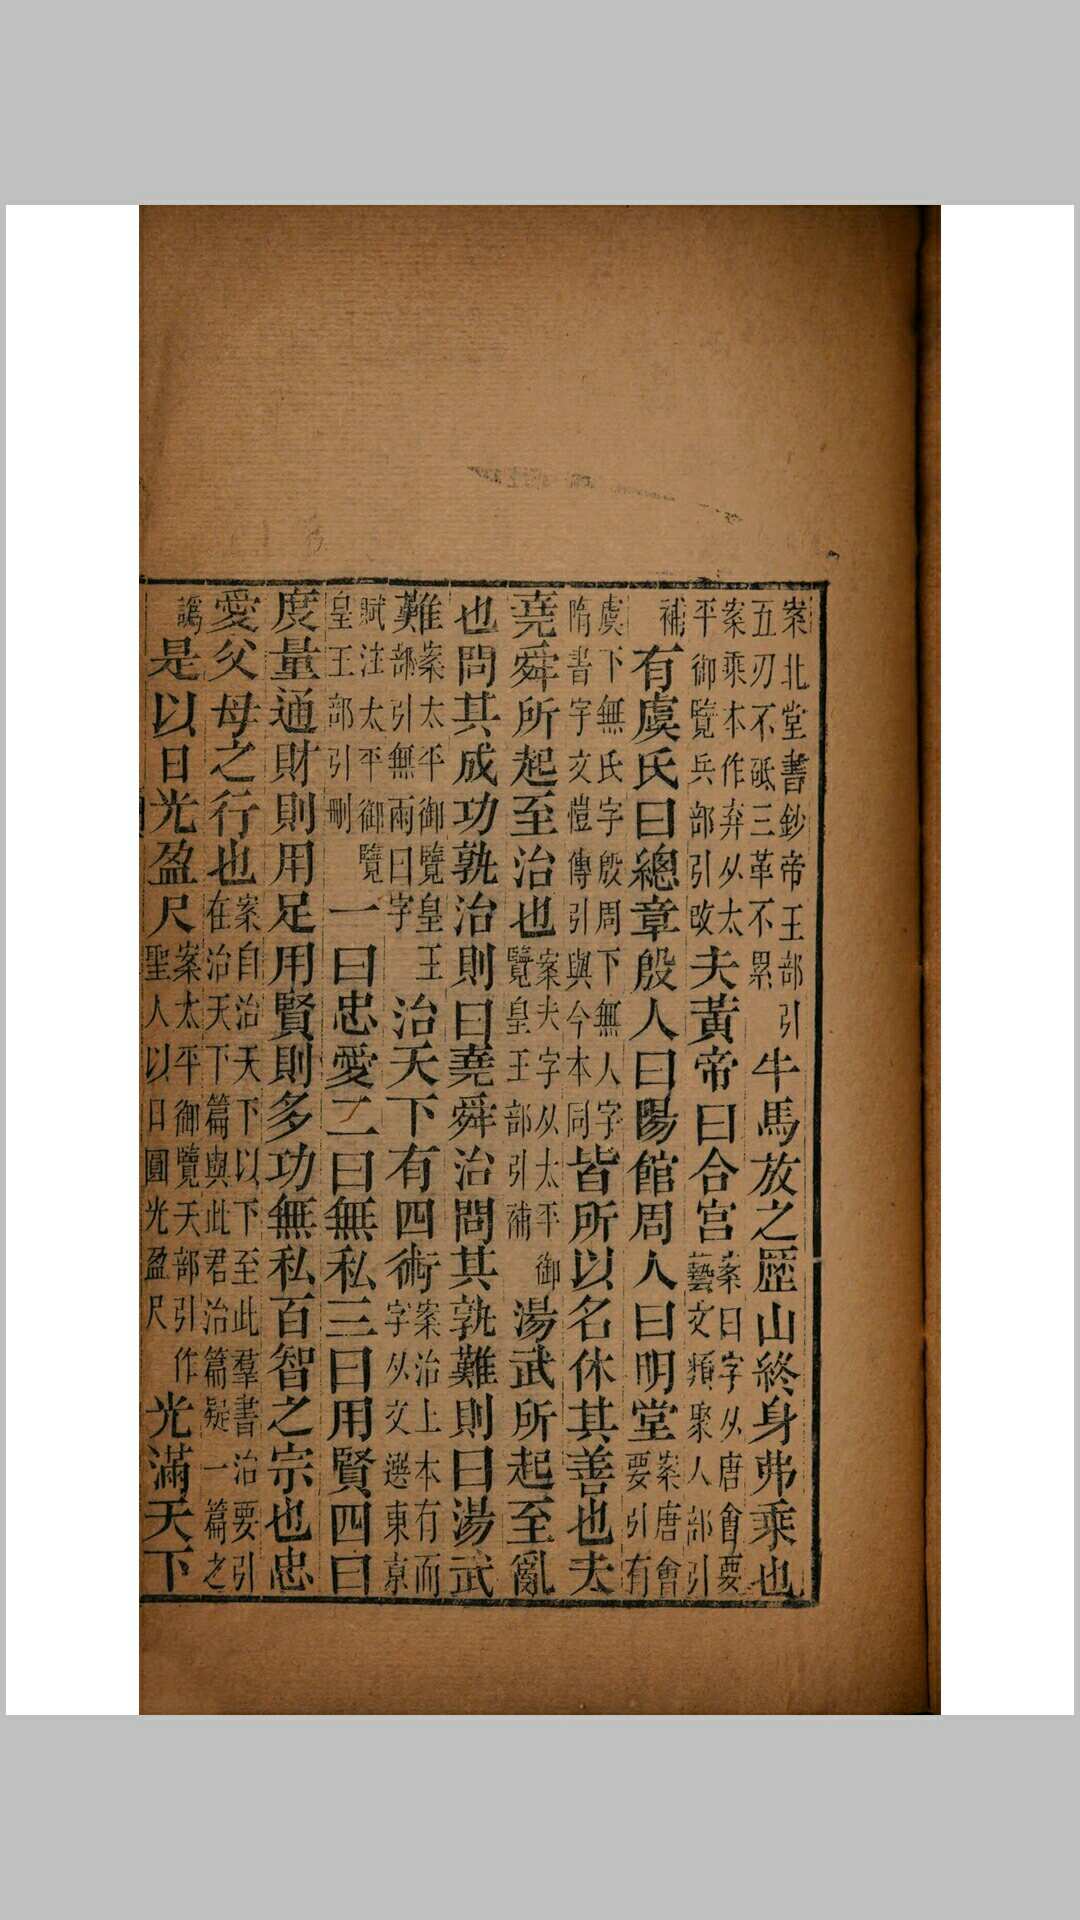 案北堂書鈔帝王部引五刃不砥三革不累牛馬放之歷山終身弗乘也
案乘本作弃从太平御覽兵部引改夫黃帝曰合宮案曰字从唐會要藝文類聚人部引
補有虞氏曰總章殷人曰陽館周人曰明堂案唐會要引有
虞下無氏字殷周下無人字隋書宇文愷傳引與今本同皆所以名休其善也夫
堯舜所起至治也案夫字从太平御覽皇王部引補湯武所起至亂
也問其成功孰治則曰堯舜治問其孰難則曰湯武
難案太平御覽皇王部引無兩曰字治天下有四術案治上本有而字从文選東京
賦注太平御覽皇王部引刪一曰忠愛二曰無私三曰用賢四曰
度量通財則用足用賢則多功無私百智之宗也忠
愛父母之行也案自治天下以下至此羣書治要引在治天下篇與此君治篇疑一篇之
譌是以日光盈尺案太平御覽天部引作聖人以日圓光盈尺光滿天下